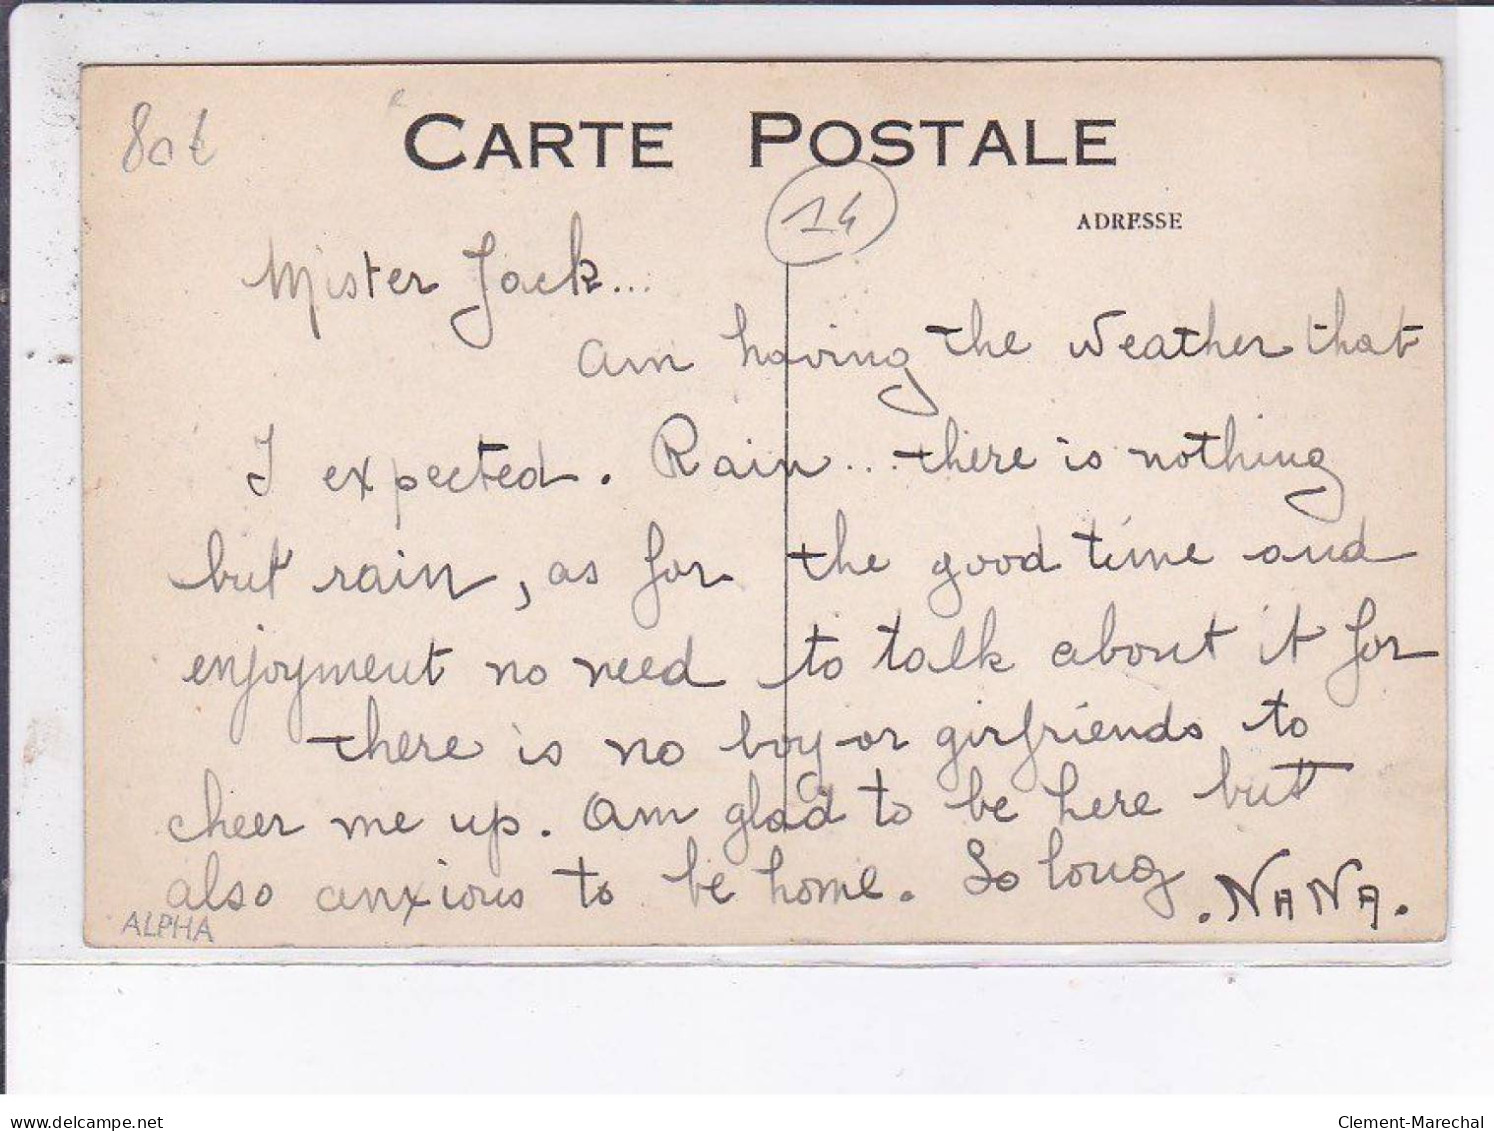 80€
CARTE POSTALE
14
ADRESSE
Mister Jack...
Am having the weather that
I expected. Rain... there is nothing
but rain, as for the good time and
enjoyment no need to talk about it for
there is no boy or girfriends to
cheer me up. Am glad to be here but
also anxious to be home. So long
.NANA.
ALPHA
delcampe.net
Clement-Marechal